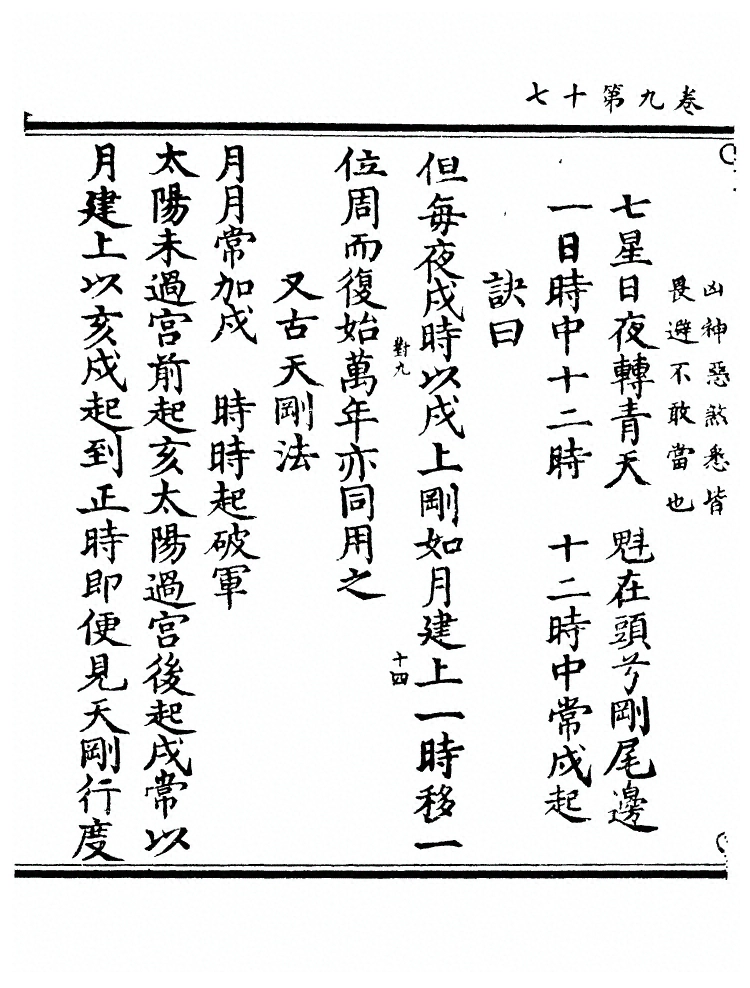 卷九第十七
凶神惡煞悉皆
畏避不敢當也
七星日夜轉青天　魁在頭兮剛尾邊
一日時中十二時　十二時中常戌起
訣曰
但每夜戌時以戌上剛如月建上一時移一
對九
十四
位周而復始萬年亦同用之
又古天剛法
月月常加戌　時時起破軍
太陽未過宮前起亥太陽過宮後起戌常以
月建上以亥戌起到正時即便見天剛行度